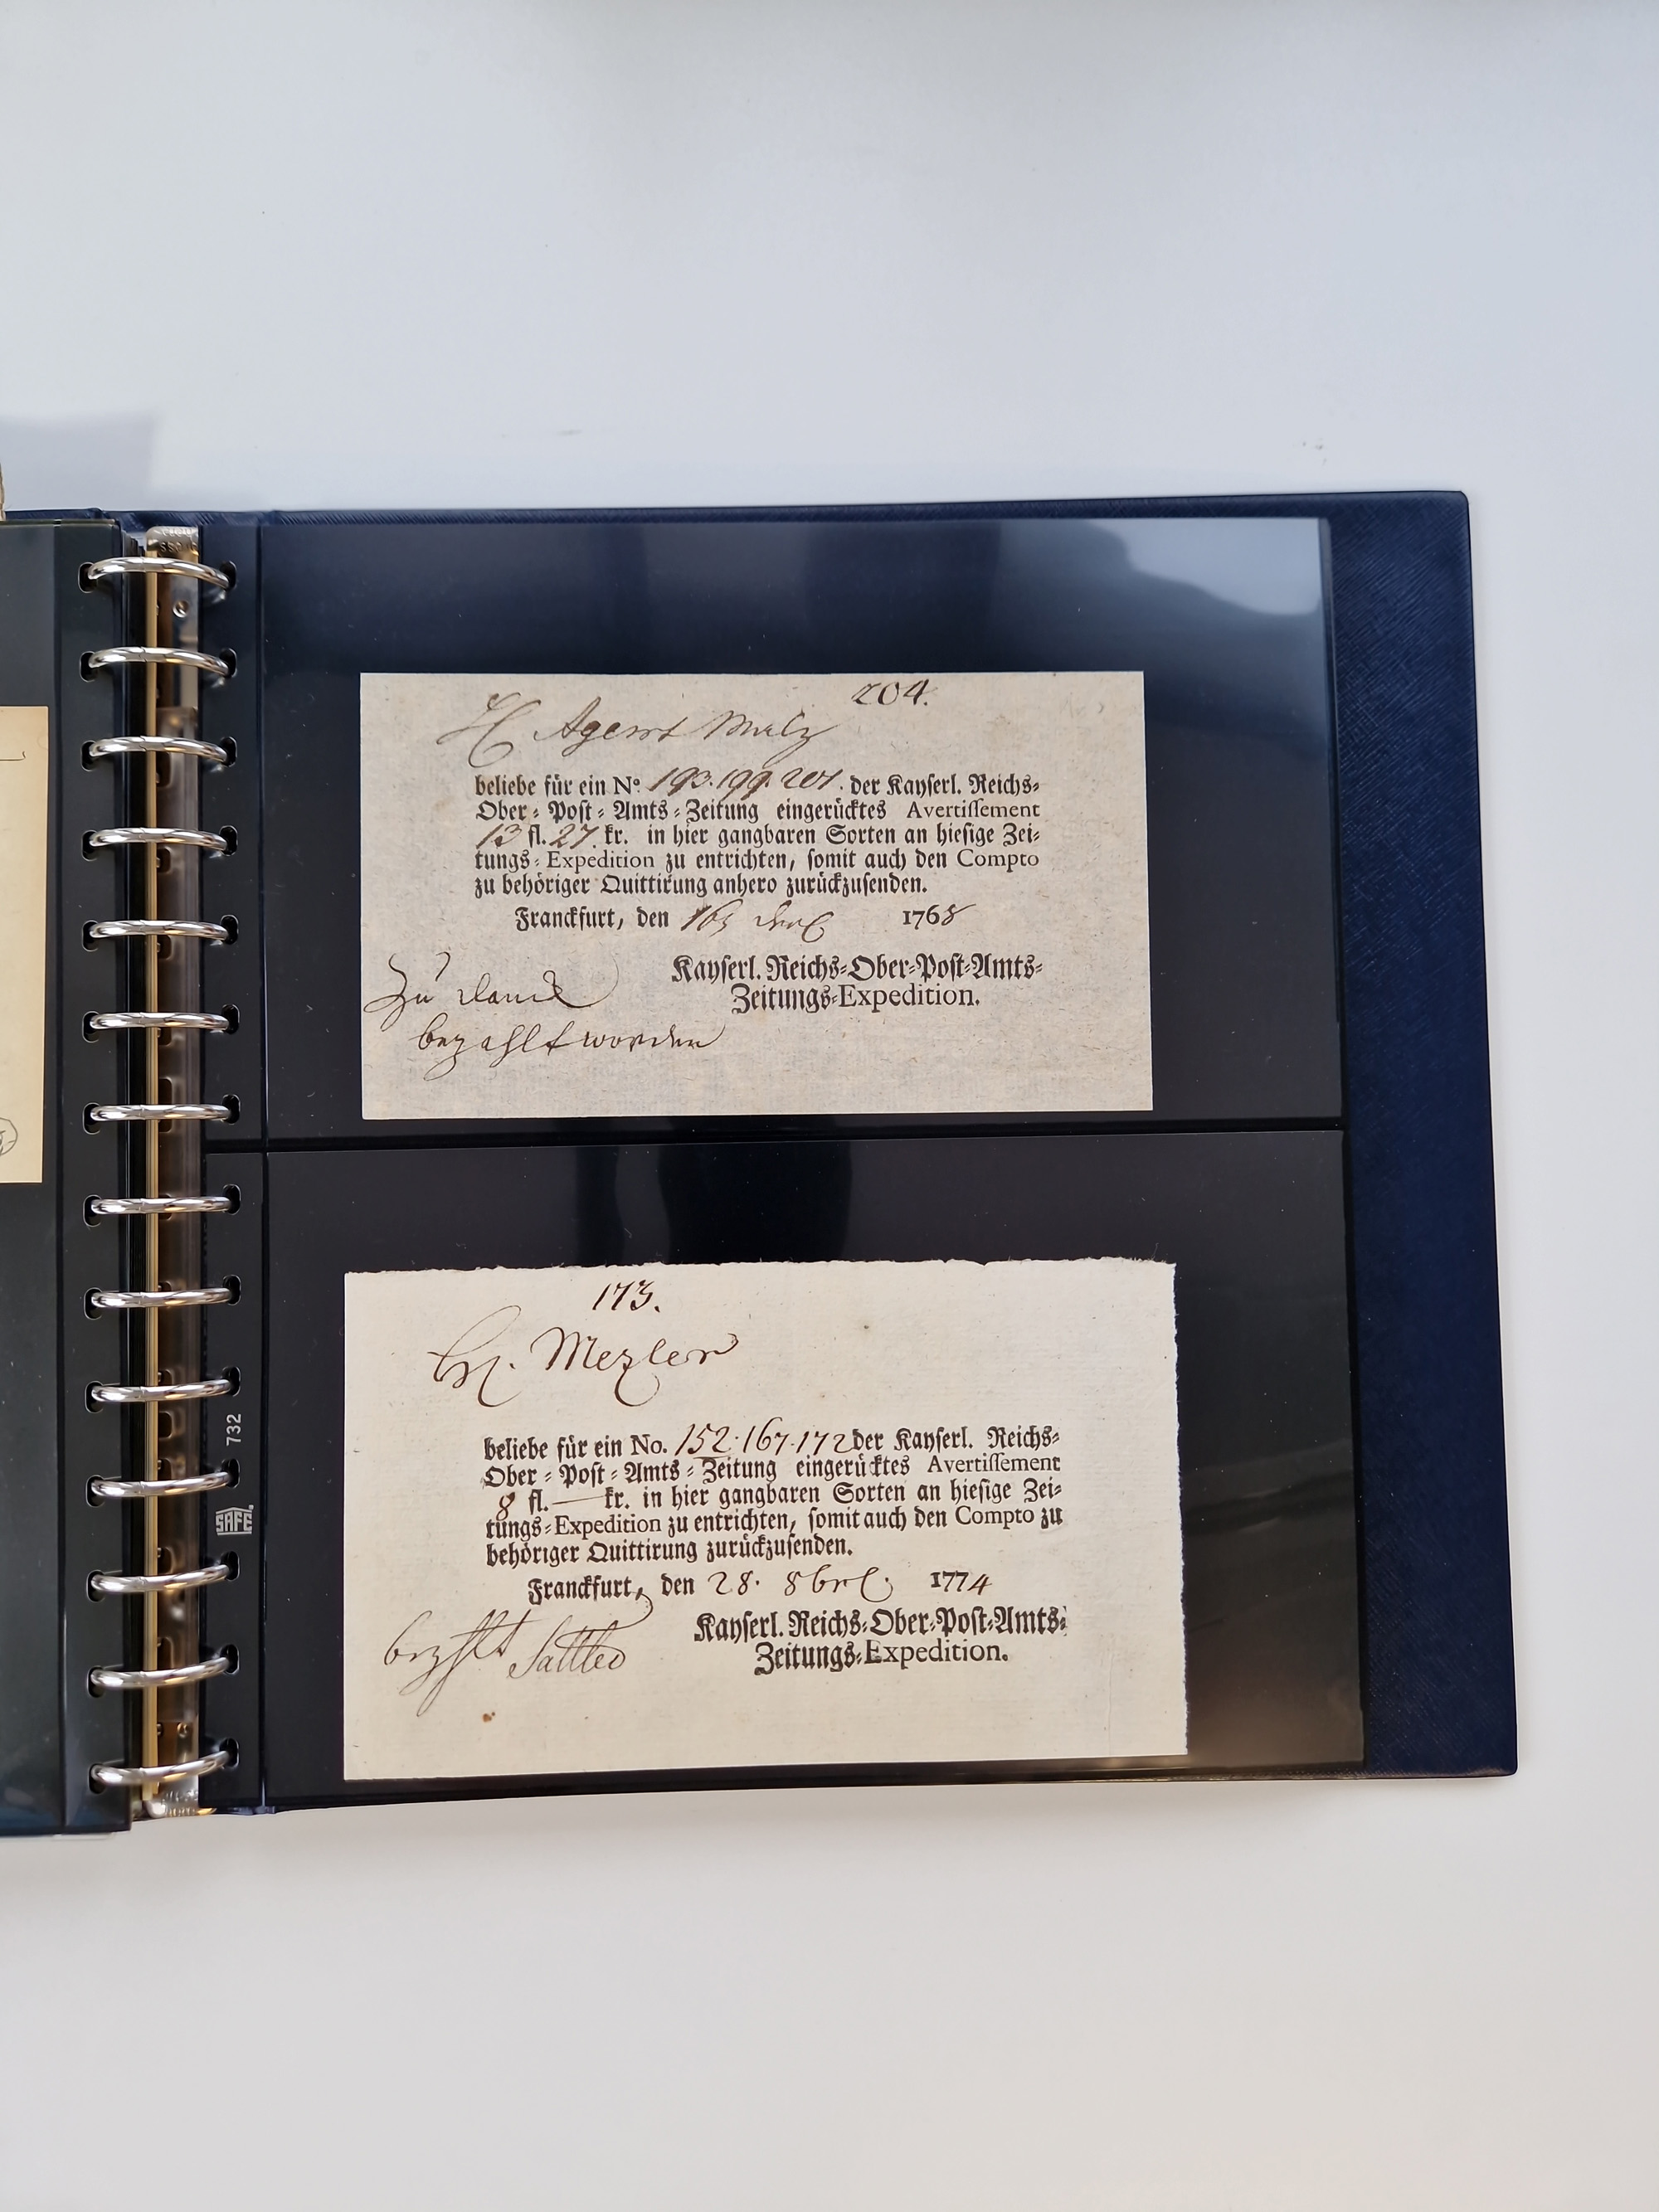 204.
H Agent
beliebe für ein No. 193. 199. 201. der Kayserl. Reichs-
Ober-Post-Amts-Zeitung eingerücktes Avertissement
13 fl. 27. kr. in hier gangbaren Sorten an hiesige Zei-
tungs-Expedition zu entrichten, somit auch den Compto
zu behöriger Quittirung anhero zurückzusenden.
Franckfurt, den 1768
Kayserl. Reichs-Ober-Post-Amts-
Zeitungs-Expedition.
Zu Danck
bezahlt worden
173.
Mezler
beliebe für ein No. 152. 167. 172 der Kayserl. Reichs-
Ober-Post-Amts-Zeitung eingerücktes Avertissement
8 fl. — kr. in hier gangbaren Sorten an hiesige Zei-
tungs-Expedition zu entrichten, somit auch den Compto zu
behöriger Quittirung zurückzusenden.
Franckfurt, den 28. 8br. 1774
Kayserl. Reichs-Ober-Post-Amts-
Zeitungs-Expedition.
bezahlt
732
SAFE